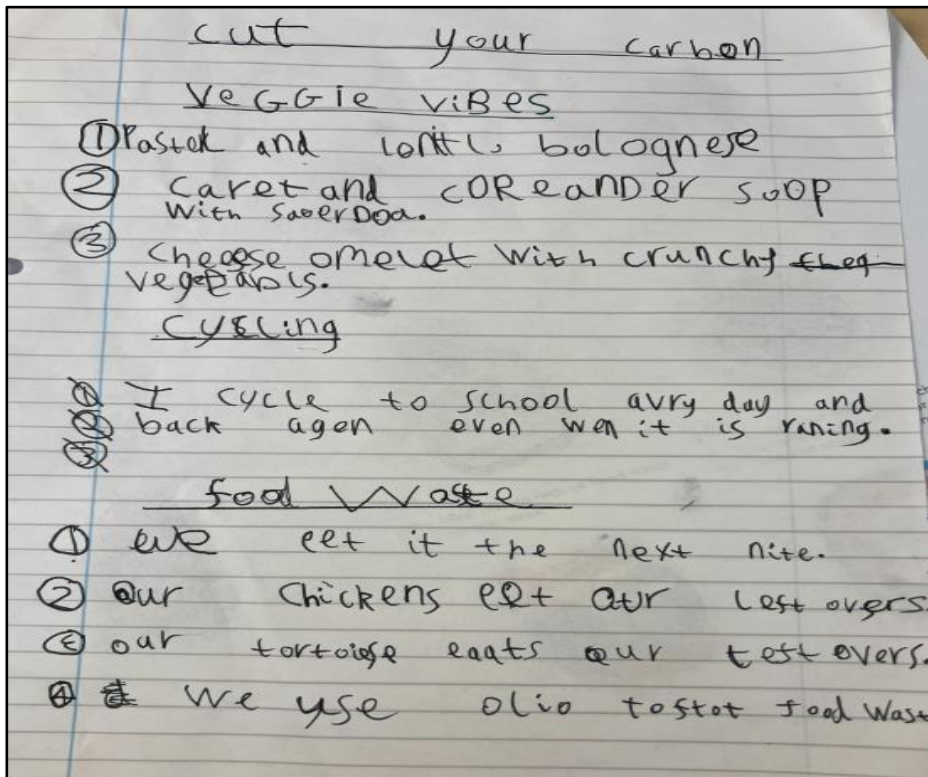 cut your carbon
VeGGie ViBes
① Pastek and lontil bolognese
② caret and COReanDeR sooP
With saoerDoa.
③ cheoese omelet with crunchy
vegetabls.
Cycling
① I cycle to school avry day and
② back agen even wen it is raning.
③
food Waste
① We eet it the next nite.
② Our Chickens eet aur left overs.
③ our tortoise eaats our left overs.
④ We use olio to stot food Wast